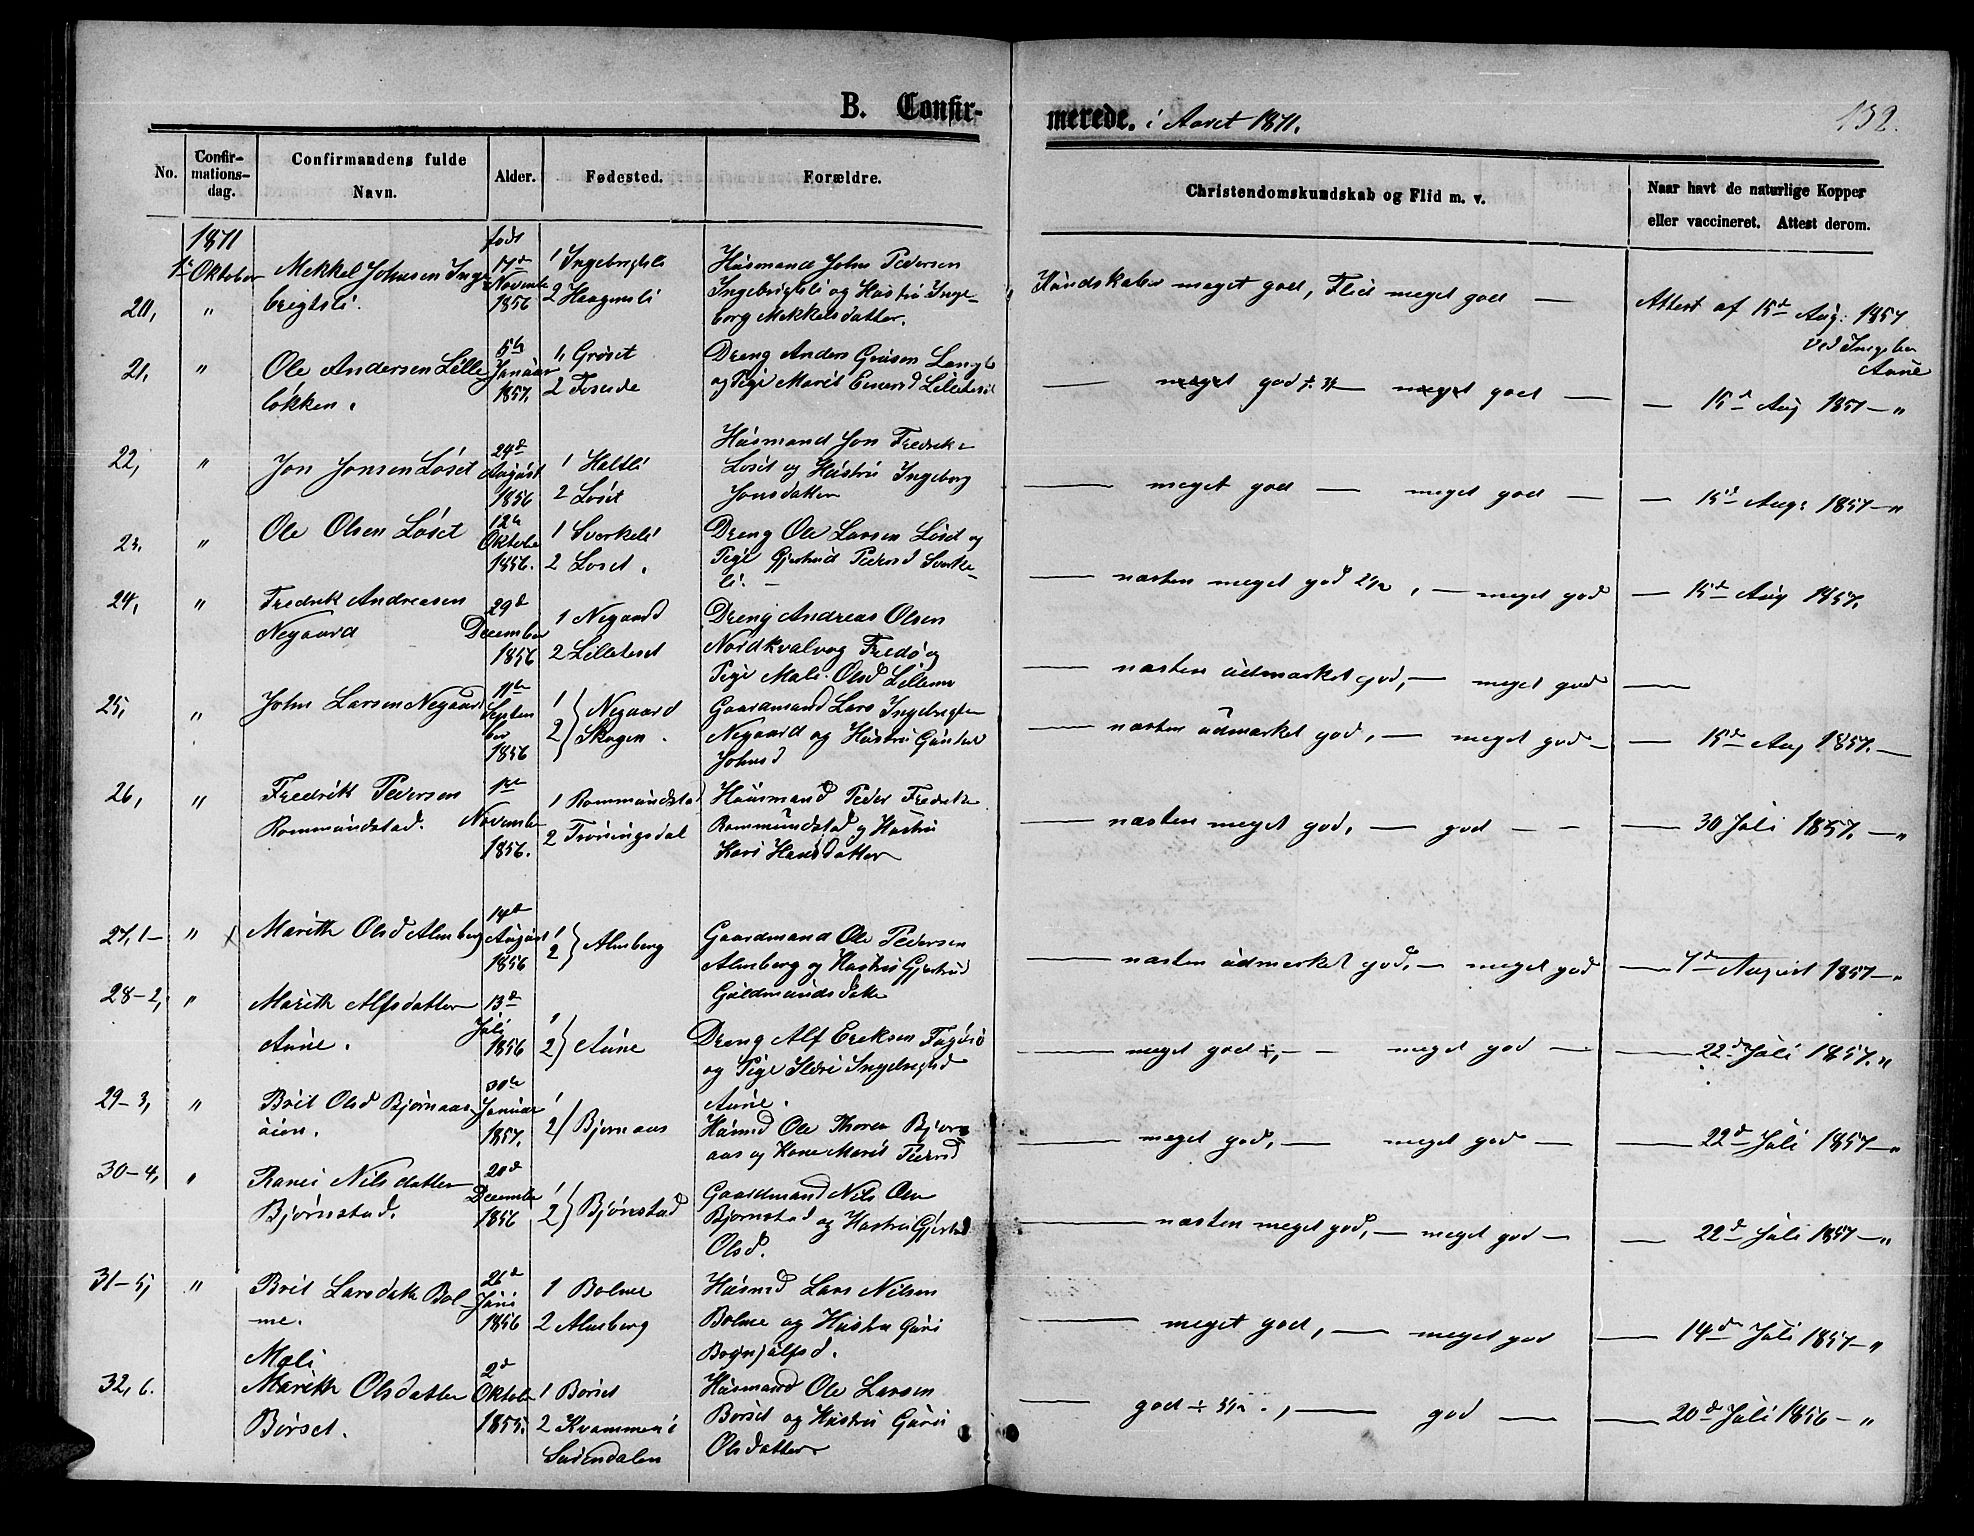 B. Confir-
merede. i Aaret 1871.
132.
No.
Confir-
mations-
dag.
Confirmandens fulde
Navn.
Alder.
Fødested.
Forældre.
Christendomskundskab og Flid m. v.
Naar havt de naturlige Kopper
eller vaccineret. Attest derom.
1871
1ste Oktober
20, "
Mekkel Johnsen Inge-
brigtsli.
født
17de
Novembr
1856
1 Ingebrigtsli
2 Haagensli
Husmand John Pedersen
Ingebrigtsli og Hustru Inge-
borg Mekkelsdatter.
Kundskaber meget god, Flid meget god —
Attest af 15de Aug: 1857
ved Ingebr
Aune
21, "
Ole Andersen Lille
løkken.
5te
Januar
1857.
1, Grøset
2 Foseide
Dreng Anders
og Pige Marit
— meget god — meget god —
— 15de Aug 1857 — "
22, "
Jon Jonsen Løset
24de
August
1856
1 Haltli
2 Løset
Husmand Jon Fredrik-
Løset og Hustru Ingeborg
Jonsdatter
— meget god — meget god —
— 15de Aug: 1857 — "
23. "
Ole Olsen Løset
12te
Oktobe
1856.
1 Sverkeli
2 Løset.
Dreng Ole Larsen Løset og
Pige Gjertrud Pedersd Sverke-
li. —
— næsten meget god 2½, — meget god
— 15de Aug 1857.
24, "
Fredrik Andreasen
Negaard
29de
December
1856
1 Negaard
2 Lilleteset
Dreng Andreas Olsen
Nordkvalvog Fredø og
Pige Mali Olsd
— næsten udmærket god, — meget god —
25, "
John Larsen Negaard
11te
Septem
ber
1856
1
2 } Negaard
Skogen.
Gaardmand Lars Ingebrigtsen
Negaard og Hustru Gunhild
Johnsd
— næsten udmærket god, — meget god —
— 15de Aug 1857. —
26, "
Fredrik Pedersen
Rommundstad.
1ste
Novembe
1856.
1 Rommundstad
2 Trøningsdal
Huusmand Peder Fredrik
Rommundstad og Hustru
Kari Hansdatter
— næsten meget god, — god — —
— 30 Juli 1857. — "
27, 1 — "
x Marith Olsd Almberg
14de
August
1856
1
2 } Almberg
Gaardmand Ole Pedersen
Almberg og Hustru Gjertrud
Guldmundsdatte
— næsten udmærket god, — meget god
— 7de August 1857 — "
28 — 2, "
Marith Alfsdatter
Aune.
13de
Juli
1856
1
2 } Aune
Dreng Alf Eriksen
og Pige Ildri Ingebrigtsd
Aune.
— meget god ÷, — meget god —
— 22de Juli 1857. "
29 — 3, "
Brit Olsd Bjørnaas-
øien.
Januar
1857.
1
2 } Bjørnaas
Husmd Ole Thoren Bjørn
aas og Kone Marit Pedersd
— meget god, — meget god —
— 22de Juli 1857 — "
30 — 4, "
Ranei Nilsdatter
Bjørnstad.
20de
December
1856
1
2 } Bjørnstad
Gaardmand Nils Olsen
Bjørnstad og Hustru Gjertrud
Olsd.
— næsten meget god, — meget god —
— 22de Juli 1857 — "
31 — 5, "
Brit Larsdatte Bol-
me.
26de
Juni
1856
1 Bolme
2 Almberg
Husmd Lars Nilsen
Bolme og Hustru Guri
— meget god, — meget god
— 14de Juli 1857 — "
32, 6.
Mali
Marith Olsdatter
Børset.
2de
Oktobe
1855.
1 Børset
2 Kvammen i
Surendalen
Husmand Ole Larsen
Børset og Hustru Guri
Olsdatter
— god ÷ 3½., — god —
— 20de Juli 1856 — "